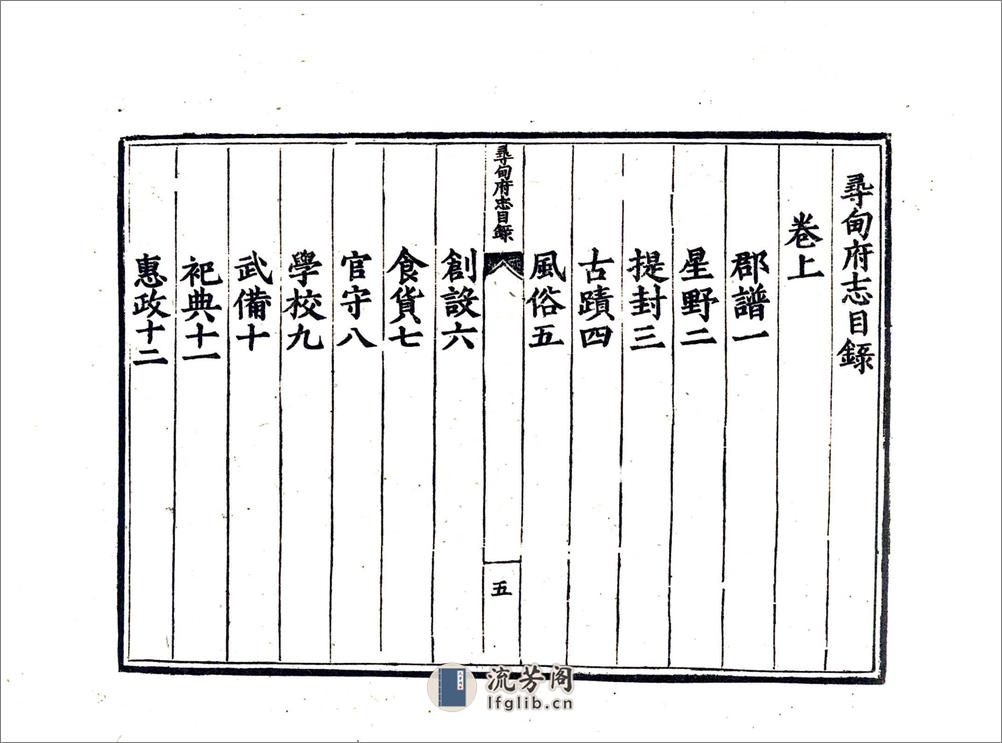 尋甸府志目錄
卷上
郡譜一
星野二
提封三
古蹟四
風俗五
尋甸府志目錄
五
創設六
食貨七
官守八
學校九
武備十
祀典十一
惠政十二
流芳阁
lfglib.cn